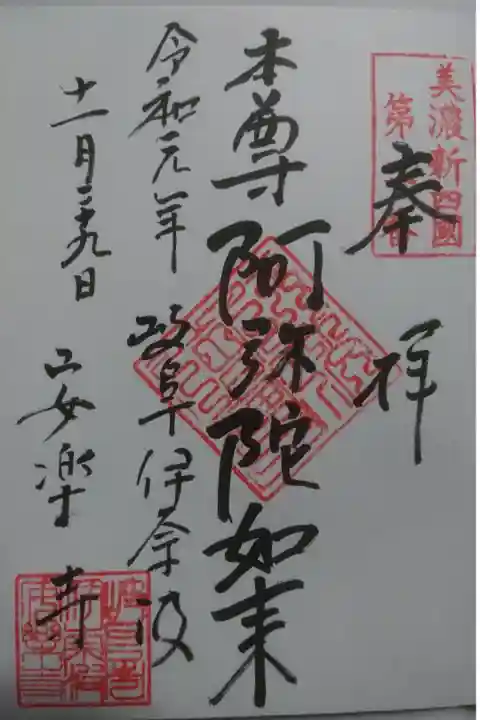 美濃新四國
第
奉
拝
本尊 阿弥陀如来
令和元年 岐阜伊奈波
十一月二十九日 安楽寺